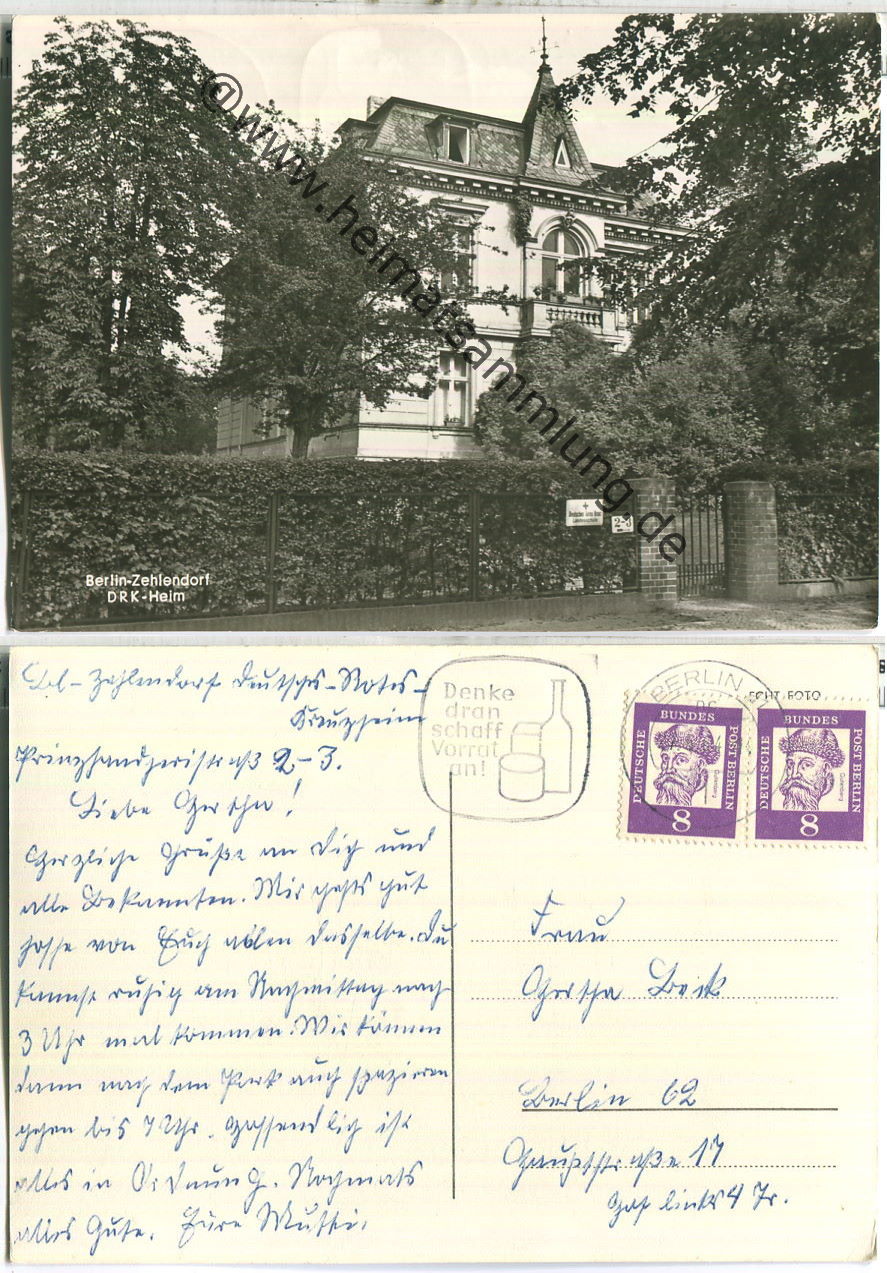 @www.heimatsammlung.de
Deutsches Rotes Kreuz
Landesschule
2-3
Berlin-Zehlendorf
DRK-Heim
Bl-Zehlendorf Deutsches-Rotes-
Kreuzheim
Prinzhandjeristraß 2-3.
Liebe Gertha!
Herzliche Grüße an Dich und
alle Bekannten. Mir gehts gut
hoffe von Euch allen dasselbe. Du
kannst ruhig am Nachmittag nach
3 Uhr mal kommen. Wir können
dann nach dem Park auch spazieren
gehen bis 7 Uhr. Hoffendlich ist
alles in Ordnung. Nochmals
alles Gute. Eure Mutti.
Denke
dran
schaff
Vorrat
an!
BERLIN
DEUTSCHE BUNDES POST BERLIN
Gutenberg
8
DEUTSCHE BUNDES POST BERLIN
Gutenberg
8
Frau
Gertha
Berlin 62
17
Hof links 4 Tr.